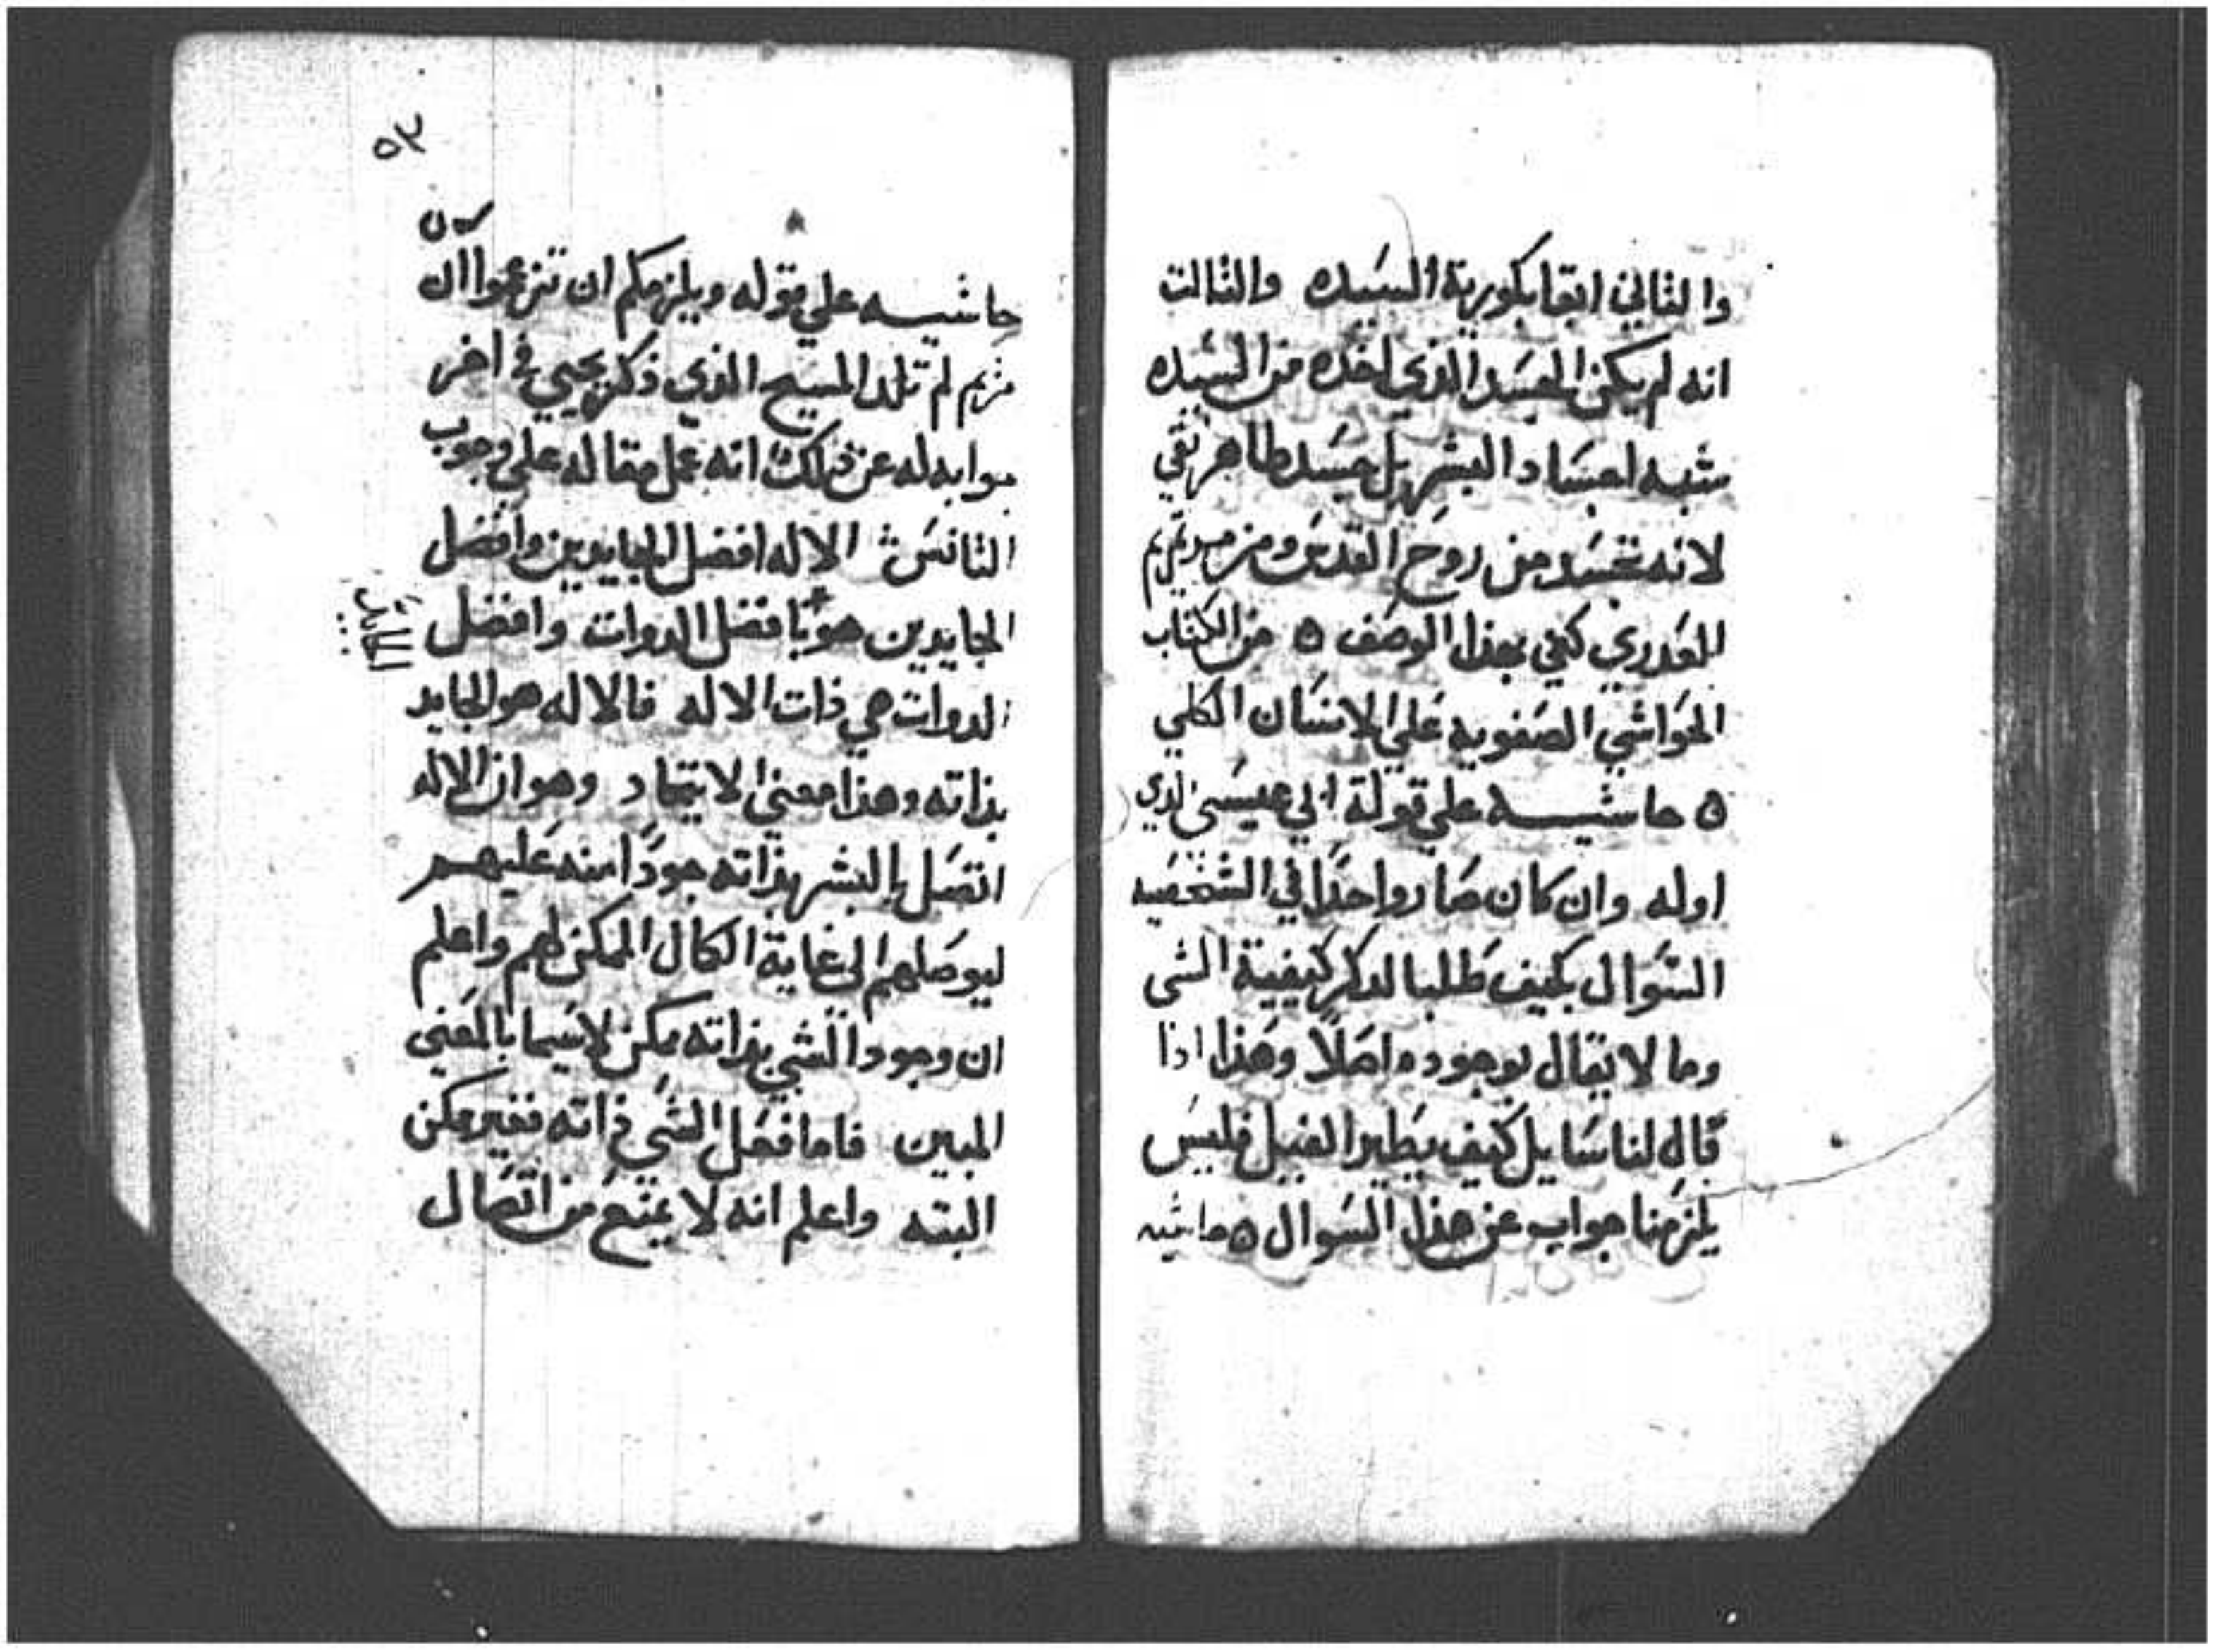 والثاني ابقا بكورية السيده والثالث
انه لم يكن الجسد الذي اخده من السيده
شبه اجساد البشر بل جسد طاهر نقي
لانه تجسد من روح القدس ومن مريم
العدري كفي بهذا الوصف ٥ من الكتاب
الحواشي الصفويه علي الانسان الكلي
٥ حاشيه علي قولة ابي عيسي الدي
اوله وان كان صار واحدا في الشخصيه
السوال بكيف طلبا لدكر كيفية الشي
وما لا يقال بوجوده اصلا وهذا اذا
قال لنا سايل كيف يطير الفيل فليس
يلزمنا جواب عن هذا السوال ٥ حاشيه
٥٣
حاشيه علي قوله ويلزمكم ان تزعموا ان
مريم لم تلد المسيح الذي ذكر يحيي في اخر
جوابه له عن ذلك انه عمل مقاله علي وجوب
التانس الاله افضل الجايدين وافضل
الجايدين هو بافضل الدوات وافضل
الدوات هي ذات الاله فالاله هو الجايد
بذاته وهذا معني الاتحاد وهو ان الاله
اتصل بالبشر بذاته جودا منه عليهم
ليوصلهم الى غاية الكمال الممكن لهم واعلم
ان وجود الشي بذاته ممكن لاسيما بالمعني
المبين فاما فصل الشي ذاته فغير ممكن
البته واعلم انه لا يمتنع من اتصال